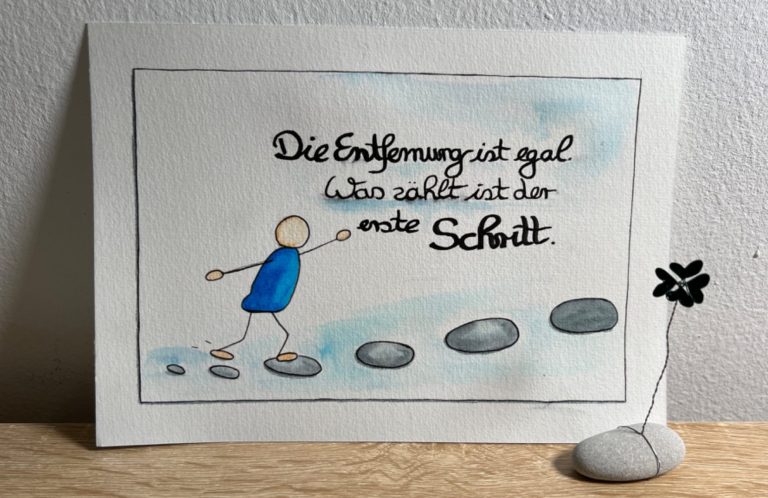 Die Entfernung ist egal.
Was zählt ist der
erste Schritt.